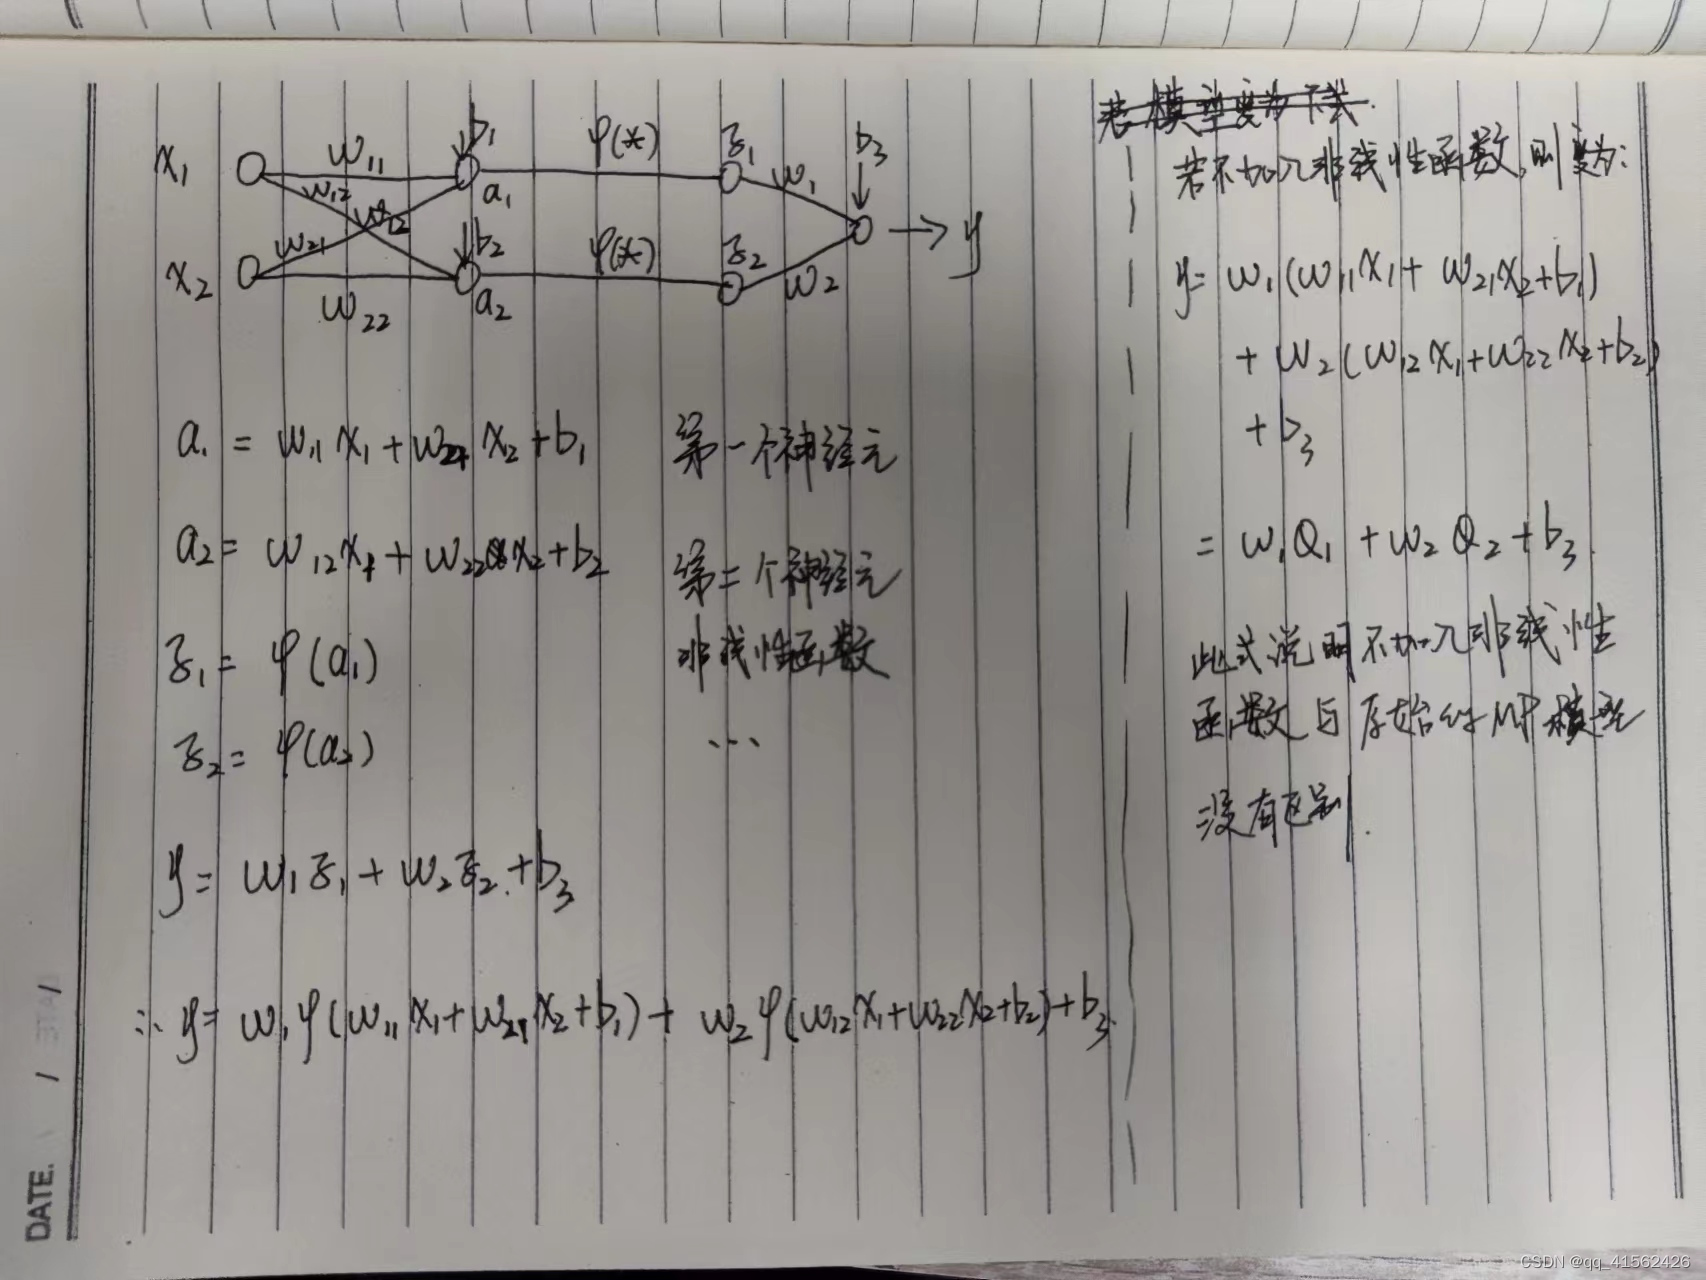 x₁ w₁₁ b₁ φ(*) z₁ b₃
w₁₂ a₁ w₁
w₂₁ b₂ φ(*) z₂ → y
x₂ w₂₂ a₂ w₂
a₁ = w₁₁x₁ + w₂₁x₂ + b₁ 第一个神经元
a₂ = w₁₂x₁ + w₂₂x₂ + b₂ 第二个神经元
z₁ = φ(a₁) 非线性函数
z₂ = φ(a₂) ...
y = w₁z₁ + w₂z₂ + b₃
∴ y = w₁φ(w₁₁x₁ + w₂₁x₂ + b₁) + w₂φ(w₁₂x₁ + w₂₂x₂ + b₂) + b₃
若模型变为下式
若不加入非线性函数,则变为:
y = w₁(w₁₁x₁ + w₂₁x₂ + b₁)
+ w₂(w₁₂x₁ + w₂₂x₂ + b₂)
+ b₃
= w₁a₁ + w₂a₂ + b₃.
此式说明不加入非线性
函数与原始的MP模型
没有区别.
DATE. / /
CSDN @qq_41562426